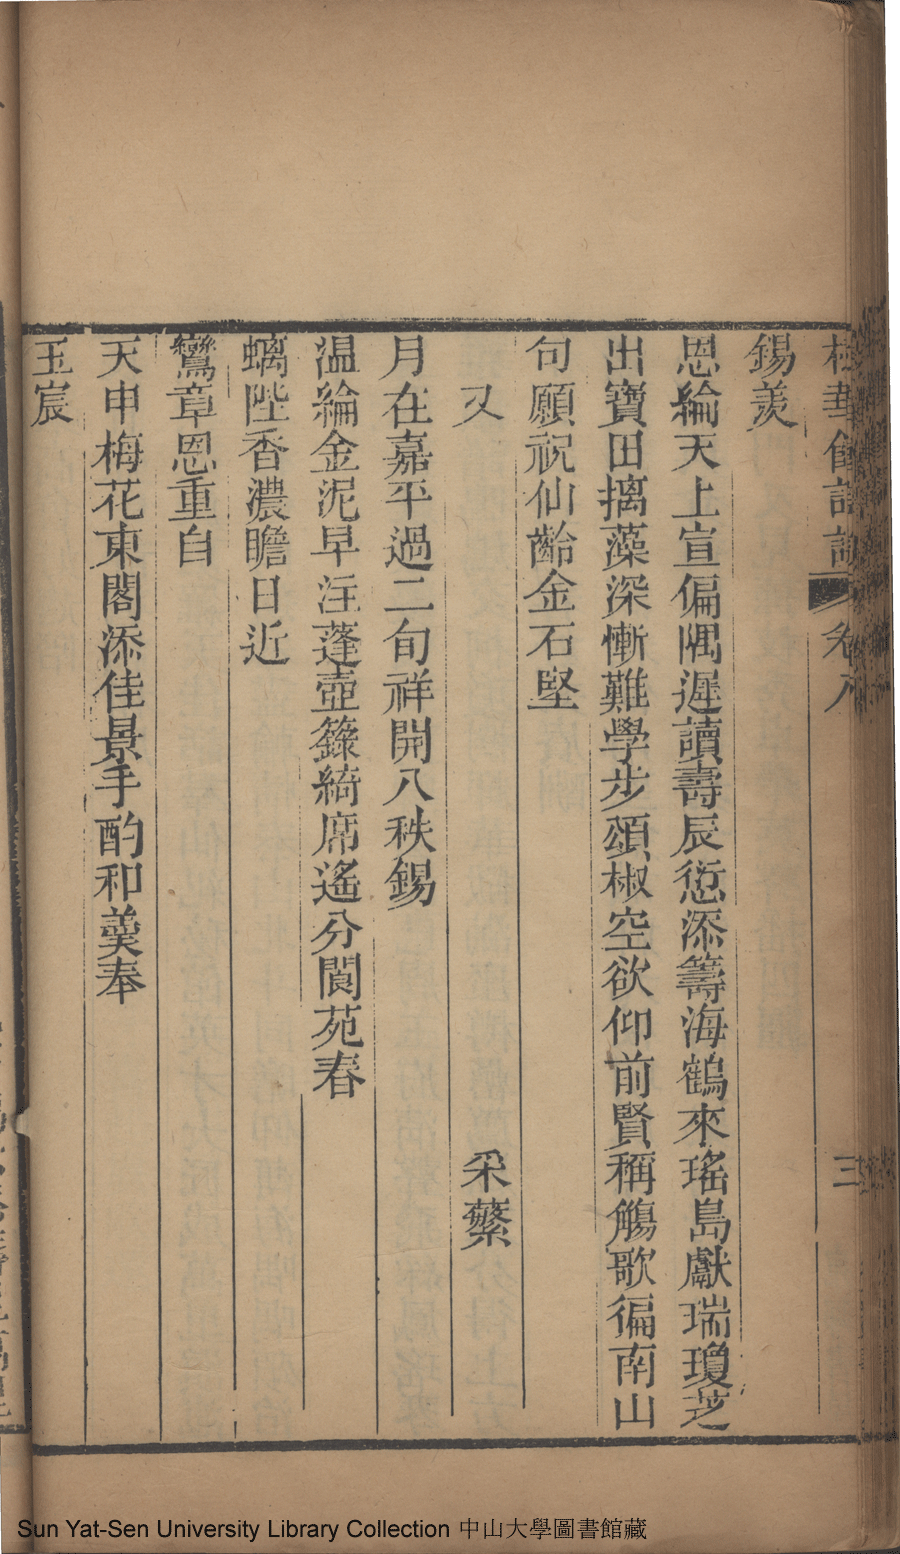 桂華館詩詞 卷八 三
錫羨
恩綸天上宣偏隅遲讀壽辰愆添籌海鶴來瑤島獻瑞瓊芝
出寶田摛藻深慚難學步頌椒空欲仰前賢稱觴歌徧南山
句願祝仙齡金石堅
又 采蘩
月在嘉平過二旬祥開八秩錫
温綸金泥早注蓬壺籙綺席遙分閬苑春
螭陛香濃瞻日近
鸞章恩重自
天申梅花東閣添佳景手酌和羹奉
玉宸
Sun Yat-Sen University Library Collection 中山大學圖書館藏